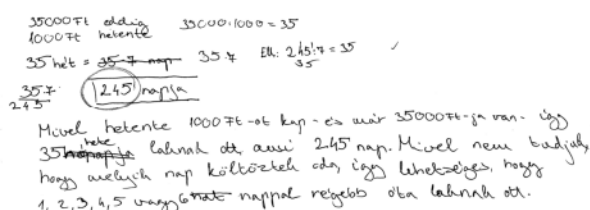 35000 Ft eddig 35000:1000=35
1000 Ft hetente
35 hét = 35·7 nap 35·7 Ell: 245:7=35
35
35·7
245 245 napja
Mivel hetente 1000 Ft-ot kap - és már 35000 Ft-ja van - így
35 hónapja hete laknak ott, ami 245 nap. Mivel nem tudjuk,
hogy melyik nap költöztek oda, így lehetséges, hogy
1, 2, 3, 4, 5 vagy 6 hat nappal régebb óta laknak ott.